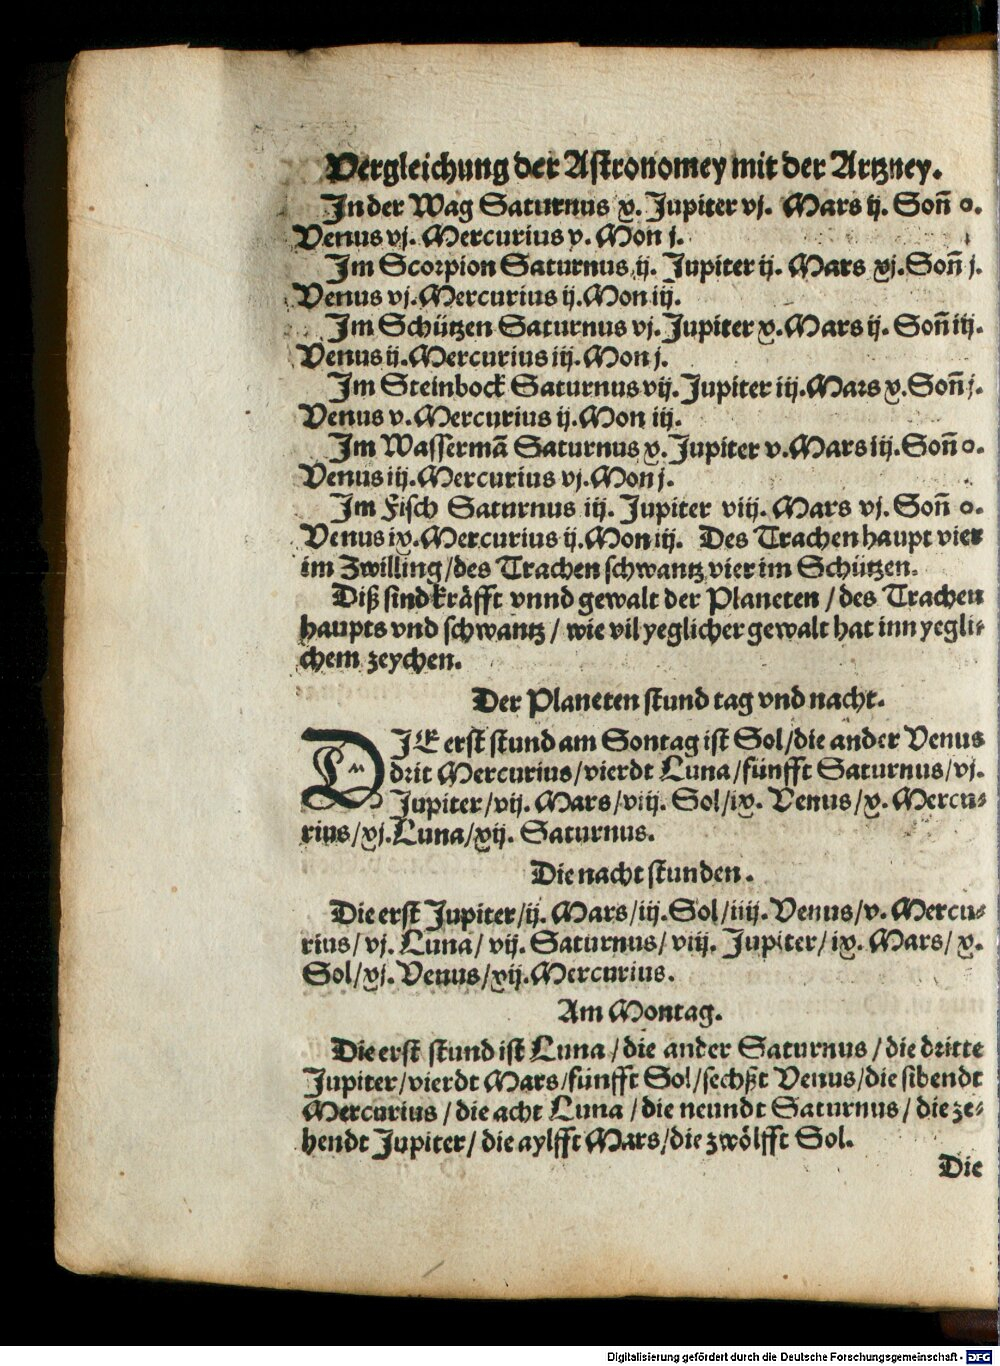 Vergleichung der Astronomey mit der Artzney.
In der Wag Saturnus x. Jupiter vj. Mars ij. Soñ o.
Venus vj. Mercurius v. Mon j.
Im Scorpion Saturnus ij. Jupiter ij. Mars xj. Soñ j.
Venus vj. Mercurius ij. Mon iij.
Im Schützen Saturnus vj. Jupiter x. Mars ij. Soñ iij.
Venus ij. Mercurius iij. Mon j.
Im Steinbock Saturnus vij. Jupiter iij. Mars x. Soñ j.
Venus v. Mercurius ij. Mon iij.
Im Wassermã Saturnus x. Jupiter v. Mars iij. Soñ o.
Venus iij. Mercurius vj. Mon j.
Im Fisch Saturnus iij. Jupiter viij. Mars vj. Soñ o.
Venus ix. Mercurius ij. Mon iij. Des Trachen haupt vier
im Zwilling / des Trachen schwantz vier im Schützen.
Diß sind kräfft vnnd gewalt der Planeten / des Trachen
haupts vnd schwantz / wie vil yeglicher gewalt hat inn yegli⸗
chem zeychen.
Der Planeten stund tag vnd nacht.
DIE erst stund am Sontag ist Sol / die ander Venus
drit Mercurius / vierdt Luna / fünfft Saturnus / vj.
Jupiter / vij. Mars / viij. Sol / ix. Venus / x. Mercu⸗
rius / xj. Luna / xij. Saturnus.
Die nacht stunden.
Die erst Jupiter / ij. Mars / iij. Sol / iiij. Venus / v. Mercu⸗
rius / vj. Luna / vij. Saturnus / viij. Jupiter / ix. Mars / x.
Sol / xj. Venus / xij. Mercurius.
Am Montag.
Die erst stund ist Luna / die ander Saturnus / die dritte
Jupiter / vierdt Mars / fünfft Sol / sechßt Venus / die sibendt
Mercurius / die acht Luna / die neundt Saturnus / die ze⸗
hendt Jupiter / die aylfft Mars / die zwölfft Sol.
Die
Digitalisierung gefördert durch die Deutsche Forschungsgemeinschaft - DFG